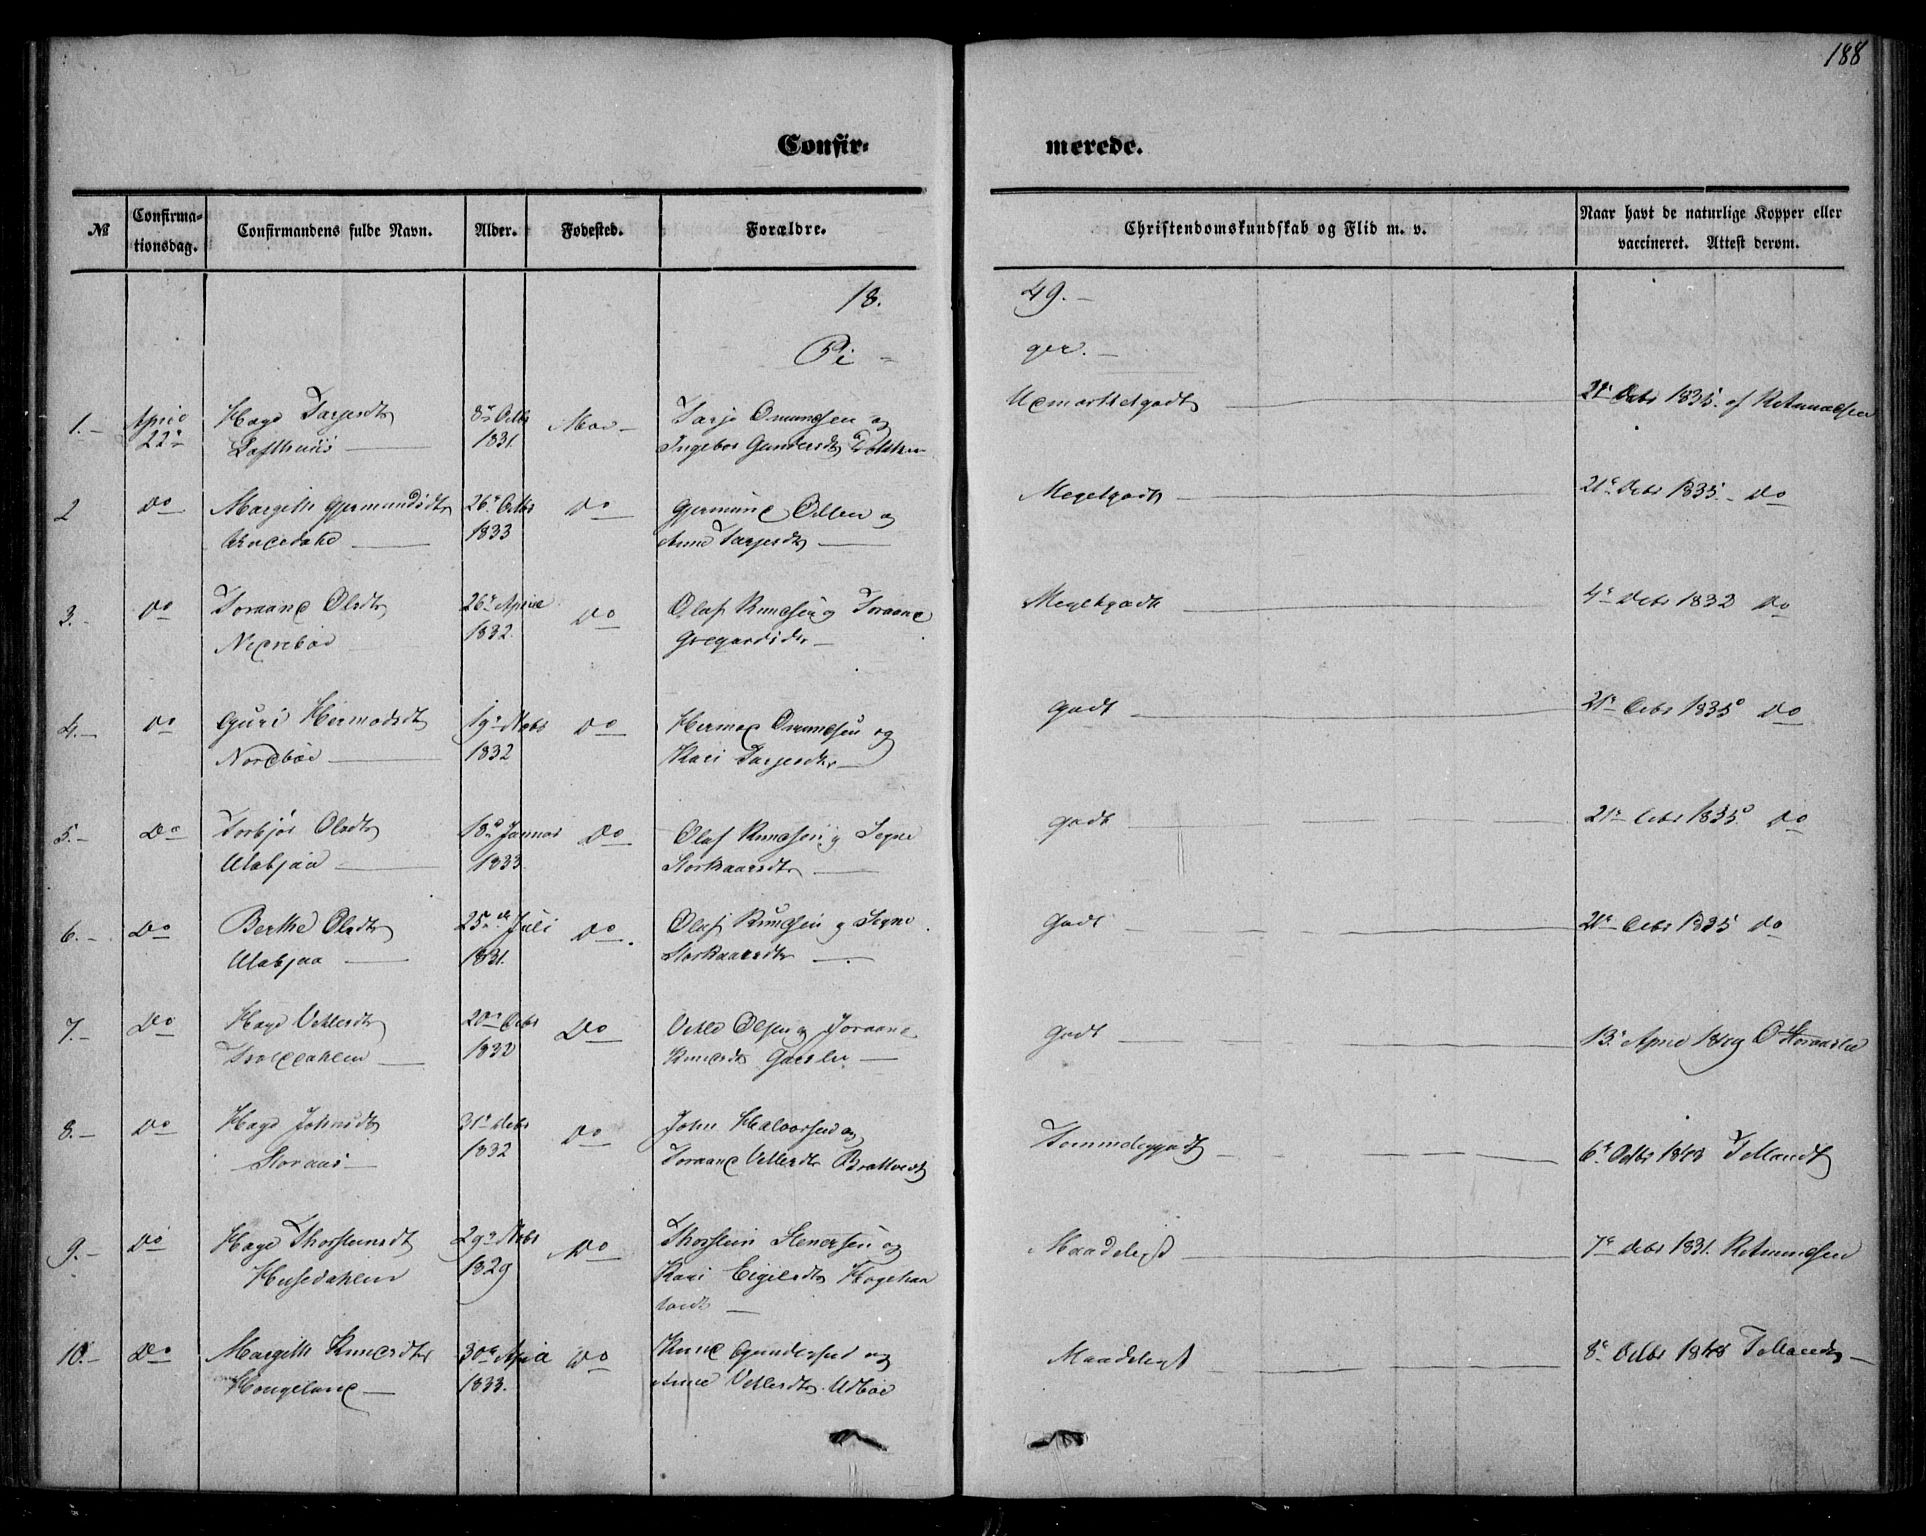 188
Confir-
merede.
№
Confirma-
tionsdag.
Confirmandens fulde Navn.
Alder.
Fødested.
Forældre.
Christendomskundskab og Flid m. v.
Naar havt de naturlige Kopper eller
vaccineret. Attest derom.
18.
49.
Pi
ger.
1.
April
22de
Hage Tarjesdtr
Lofthuus
8de Octbr
1831.
Moe
Tarje Omundsen og
Ingebor Gundersdtr
Udmærketgodt
21de Octbr 1835. af R. Amundsen
2
Do
Margith Gjermundsdtr
26de Octbr
1833
Do
Gjermund Olsen og
Anne Tarjesdtr
Megetgodt
21de Octbr 1835. Do
3.
Do
Toraand Olsdtr
Nordbøe
26de April
1832.
Do
Olaf Knudsen og Toraand
Gregardsdtr
Megetgodt
4de Octbr 1832 Do
4.
Do
Guri Hermodsdtr
Nordbøe
19de Novbr
1832
Do
Hermod Omundsen og
Kari Tarjesdtr
Godt
21de Octbr 1835 Do
5.
Do
Torbjør Olsdtr
Aabjaa
18de Januar
1833.
Do
Olaf Knudsen og Signe
Storkaarsdtr
Godt
21de Octbr 1835. Do
6.
Do
Berthe Olsdtr
Aabjaa
25de Juli
1831.
Do
Olaf Knudsen og Signe
Storkaarsdtr
Godt
21de Octbr 1835 Do
7.
Do
Hage Vetlesdtr
Troldahlen
20de Octbr
1832
Do
Vetle Olsen og Toraand
Knudsdtr
Godt
13de April 1849 O Storaaslie
8.
Do
Hage Johnsdtr
Storaas
31te Decbr
1832
Do
John Halvorsen og
Toraand Vetlesdtr Brattvedt
Temmeliggodt
6te Octbr 1848 Tellandt
9.
Do
Hage Thorsteinsdtr
Husedahlen
29de Novbr
1829
Do
Thorstein Stenersen og
Kari Eigilsdtr
Maadeligt
7de Octbr 1831. R. Amundsen
10.
Do
Margith Knudsdtr
Hougeland
30de April
1833.
Do
Knud Gundersen og
Anne Vetlesdtr Udbøe
Maadeligt
8de Octbr 1848 Tellandt